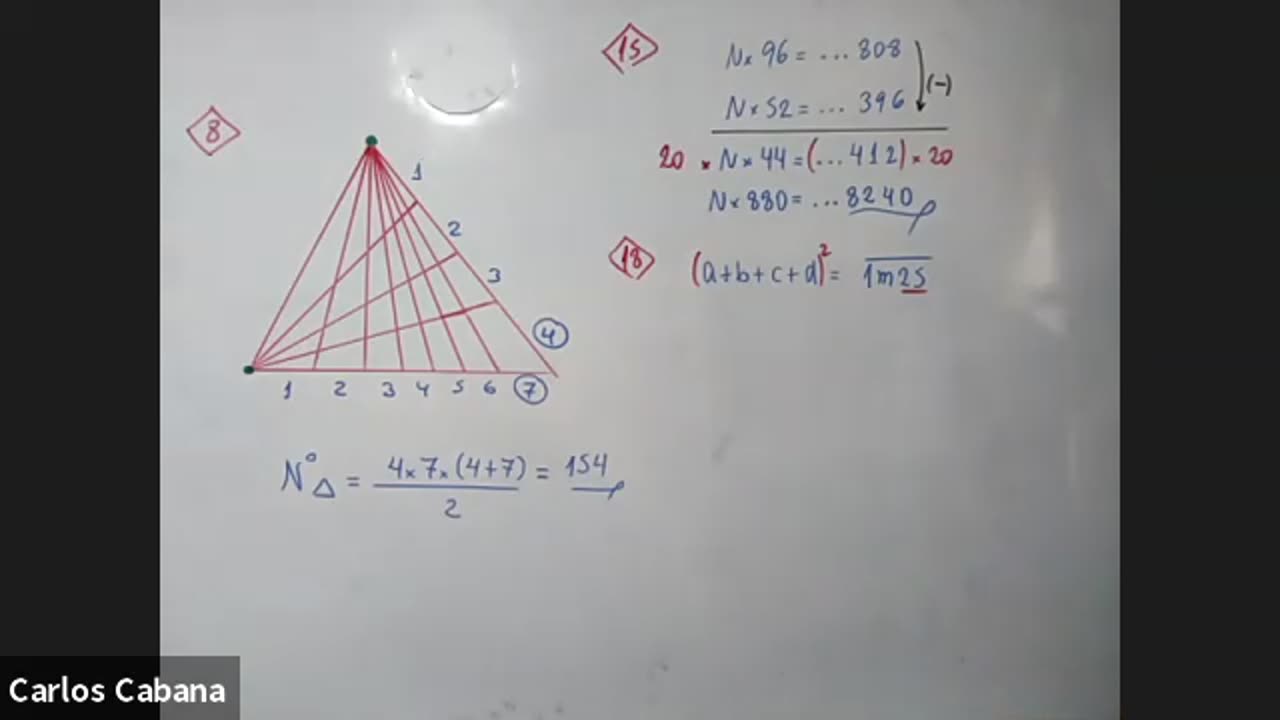 8
1
2
3
4
1 2 3 4 5 6 7
N°△ = 4×7×(4+7) / 2 = 154
15
N× 96 = ...808
N × 52 = ... 396 (-)
20 × N × 44 = (...412) × 20
N× 880 = ...8240
18
(a+b+c+d)² = 1m25
Carlos Cabana